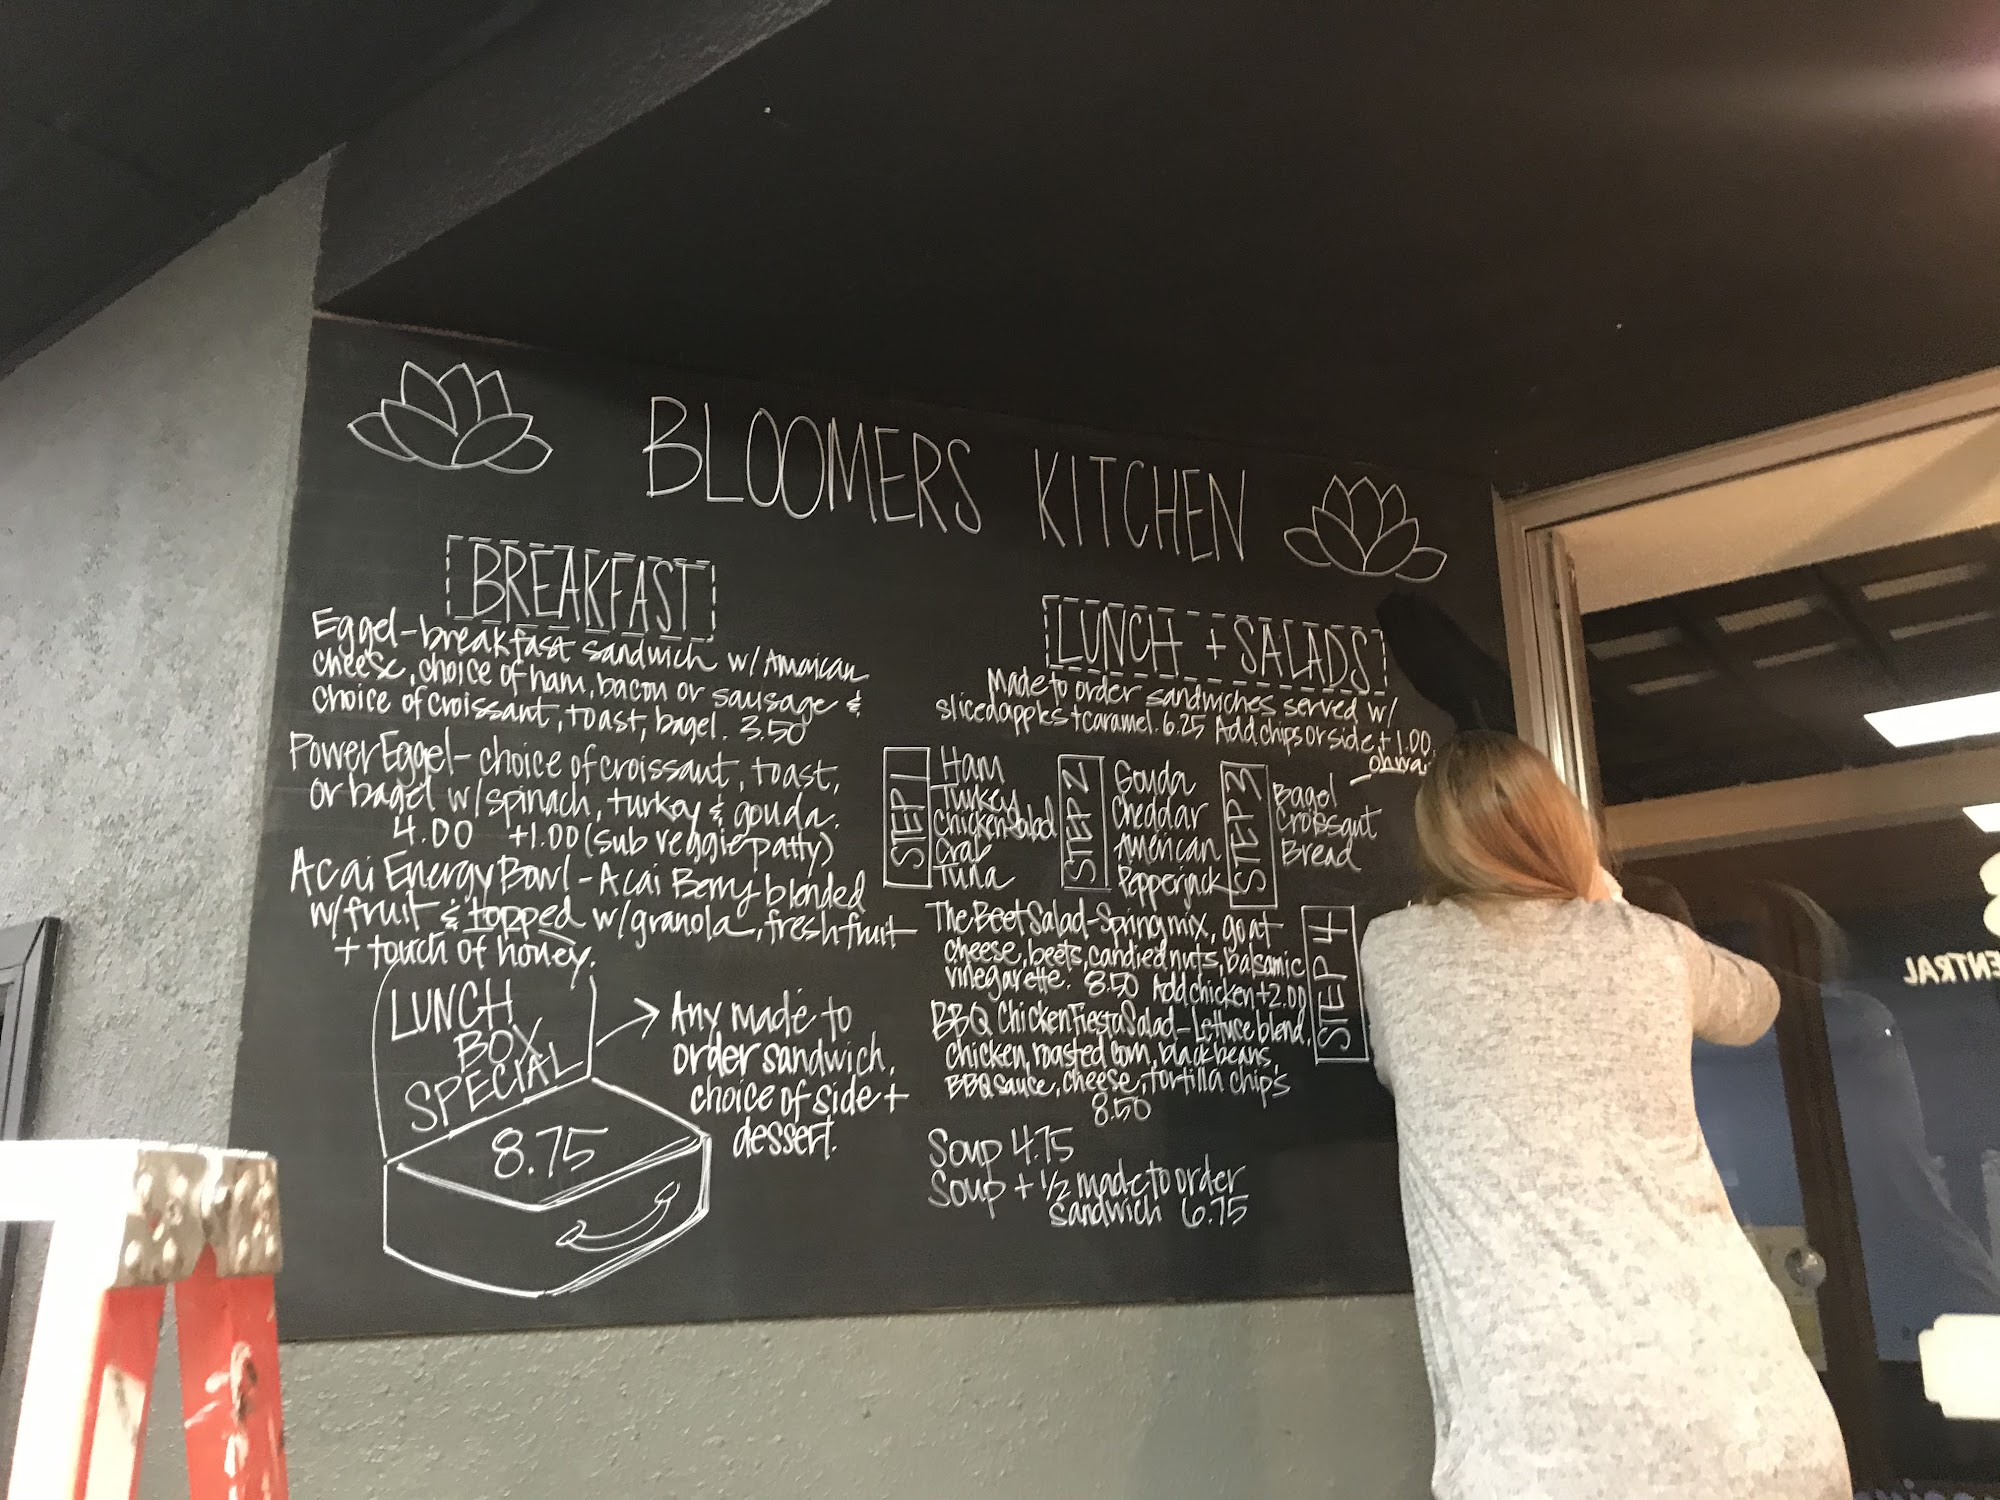 BLOOMERS KITCHEN
BREAKFAST
Eggel-breakfast sandwich w/ American
cheese, choice of ham, bacon or sausage &
choice of croissant, toast, bagel. 3.50
Power Eggel- choice of croissant, toast,
or bagel w/ spinach, turkey & gouda.
4.00 +1.00 (sub veggie patty)
Acai Energy Bowl - Acai Berry blended
w/ fruit & topped w/ granola, fresh fruit
+ touch of honey.
LUNCH
BOX
SPECIAL
8.75
Any made to
order sandwich,
choice of side +
dessert.
LUNCH + SALADS
Made to order sandwiches served w/
sliced apples + caramel. 6.25 Add chips or side + 1.00.
STEP 1
Ham
Turkey
Chicken Salad
Crab
Tuna
STEP 2
Gouda
Cheddar
American
Pepperjack
STEP 3
Bagel
Croissant
Bread
STEP 4
The Beet Salad - Spring mix, goat
cheese, beets, candied nuts, balsamic
vinegarette. 8.50 Add chicken +2.00
BBQ Chicken Fiesta Salad - Lettuce blend,
chicken, roasted corn, black beans,
BBQ sauce, cheese, tortilla chips
8.50
Soup 4.75
Soup + 1/2 made to order
sandwich 6.75